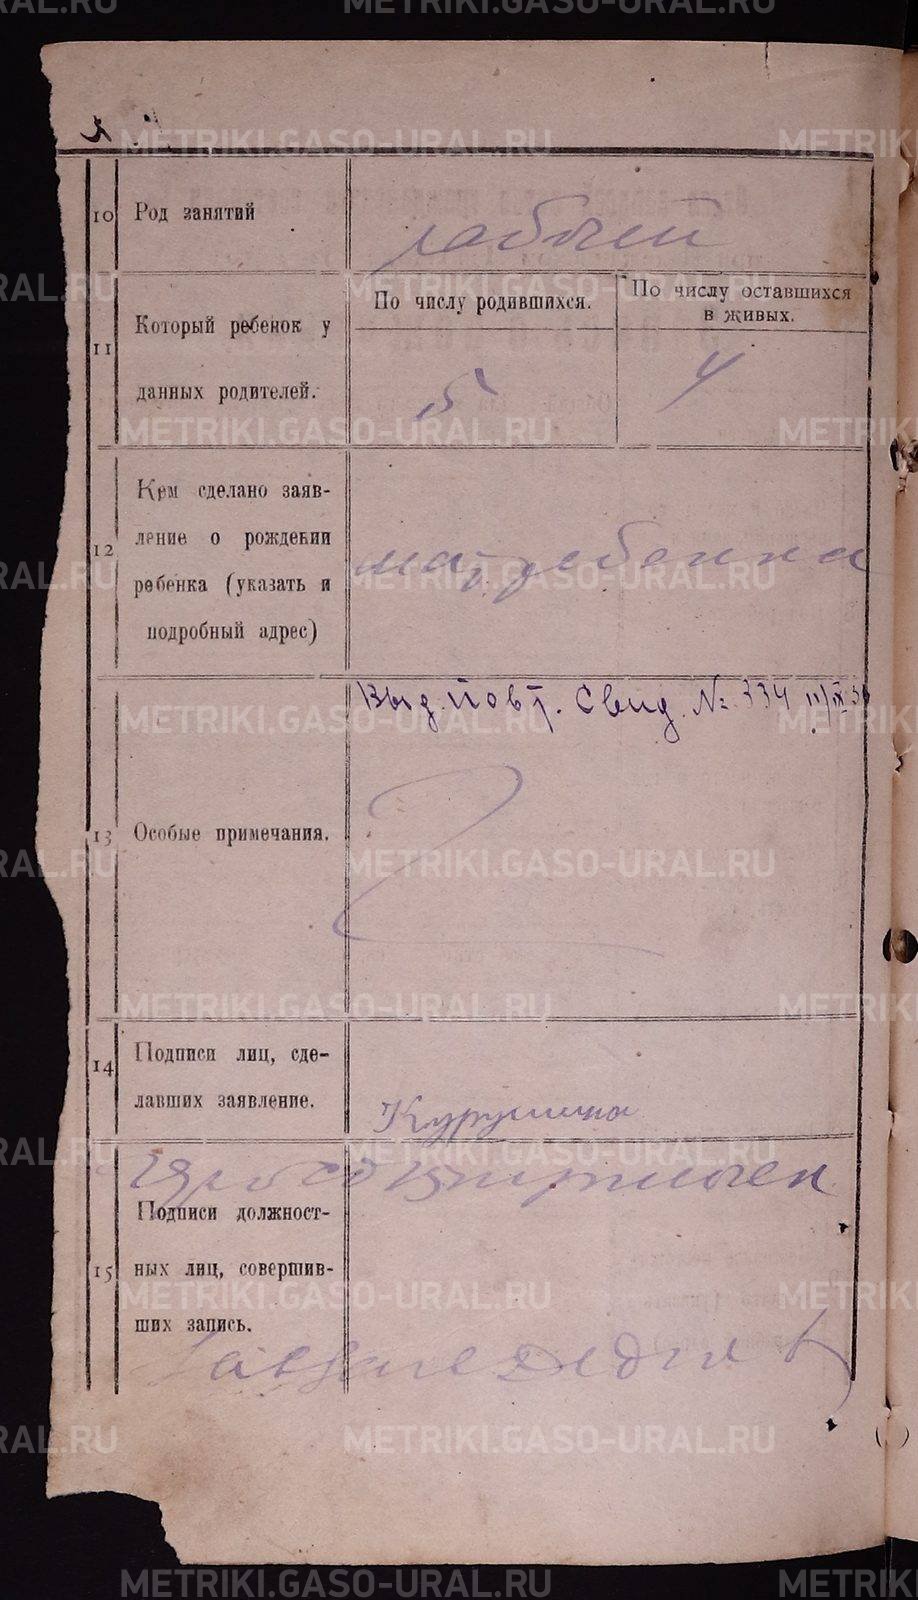 10 Род занятий
рабочий
11 Который ребенок у
данных родителей.
По числу родившихся.
По числу оставшихся
в живых.
5
4
12 Кем сделано заяв-
ление о рождении
ребенка (указать и
подробный адрес)
мат ребенка
13 Особые примечания.
Выд. повт. Свид. № 334
14 Подписи лиц, сде-
лавших заявление.
15 Подписи должност-
ных лиц, совершив-
ших запись.
METRIKI.GASO-URAL.RU